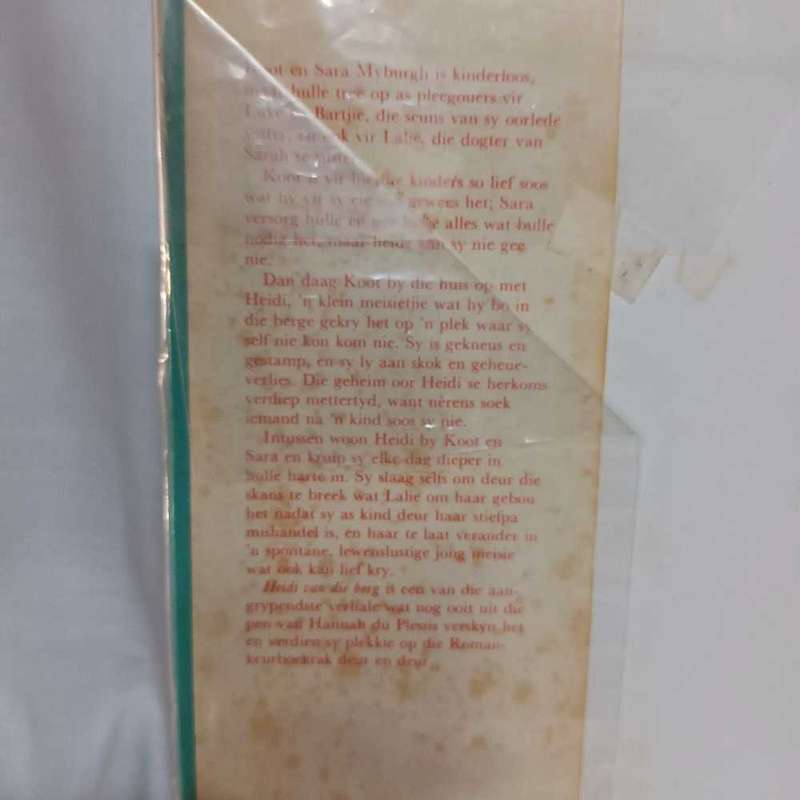 en Sara Myburgh is kinderloos,
hulle tree op as pleegouers vir
Bartjie, die seuns van sy oorlede
vir Lalie, die dogter van
Sarah se
Koot is vir hierdie kinders so lief soos
wat hy vir sy eie gewees het; Sara
versorg hulle en gee hulle alles wat hulle
nodig het, maar liefde kan sy nie gee
nie.
Dan daag Koot by die huis op met
Heidi, 'n klein meisietjie wat hy bo in
die berge gekry het op 'n plek waar sy
self nie kon kom nie. Sy is gekneus en
gestamp, en sy ly aan skok en geheue-
verlies. Die geheim oor Heidi se herkoms
verdiep mettertyd, want nêrens soek
iemand na 'n kind soos sy nie.
Intussen woon Heidi by Koot en
Sara en kruip sy elke dag dieper in
hulle harte in. Sy slaag selfs om deur die
skans te breek wat Lalie om haar gebou
het nadat sy as kind deur haar stiefpa
mishandel is, en haar te laat verander in
'n spontane, lewenslustige jong meisie
wat ook kan lief kry.
Heidi van die berg is een van die aan-
grypendste verhale wat nog ooit uit die
pen van Hannah du Plessis verskyn het
en verdien sy plekkie op die Roman-
keurboekrak deur en deur.